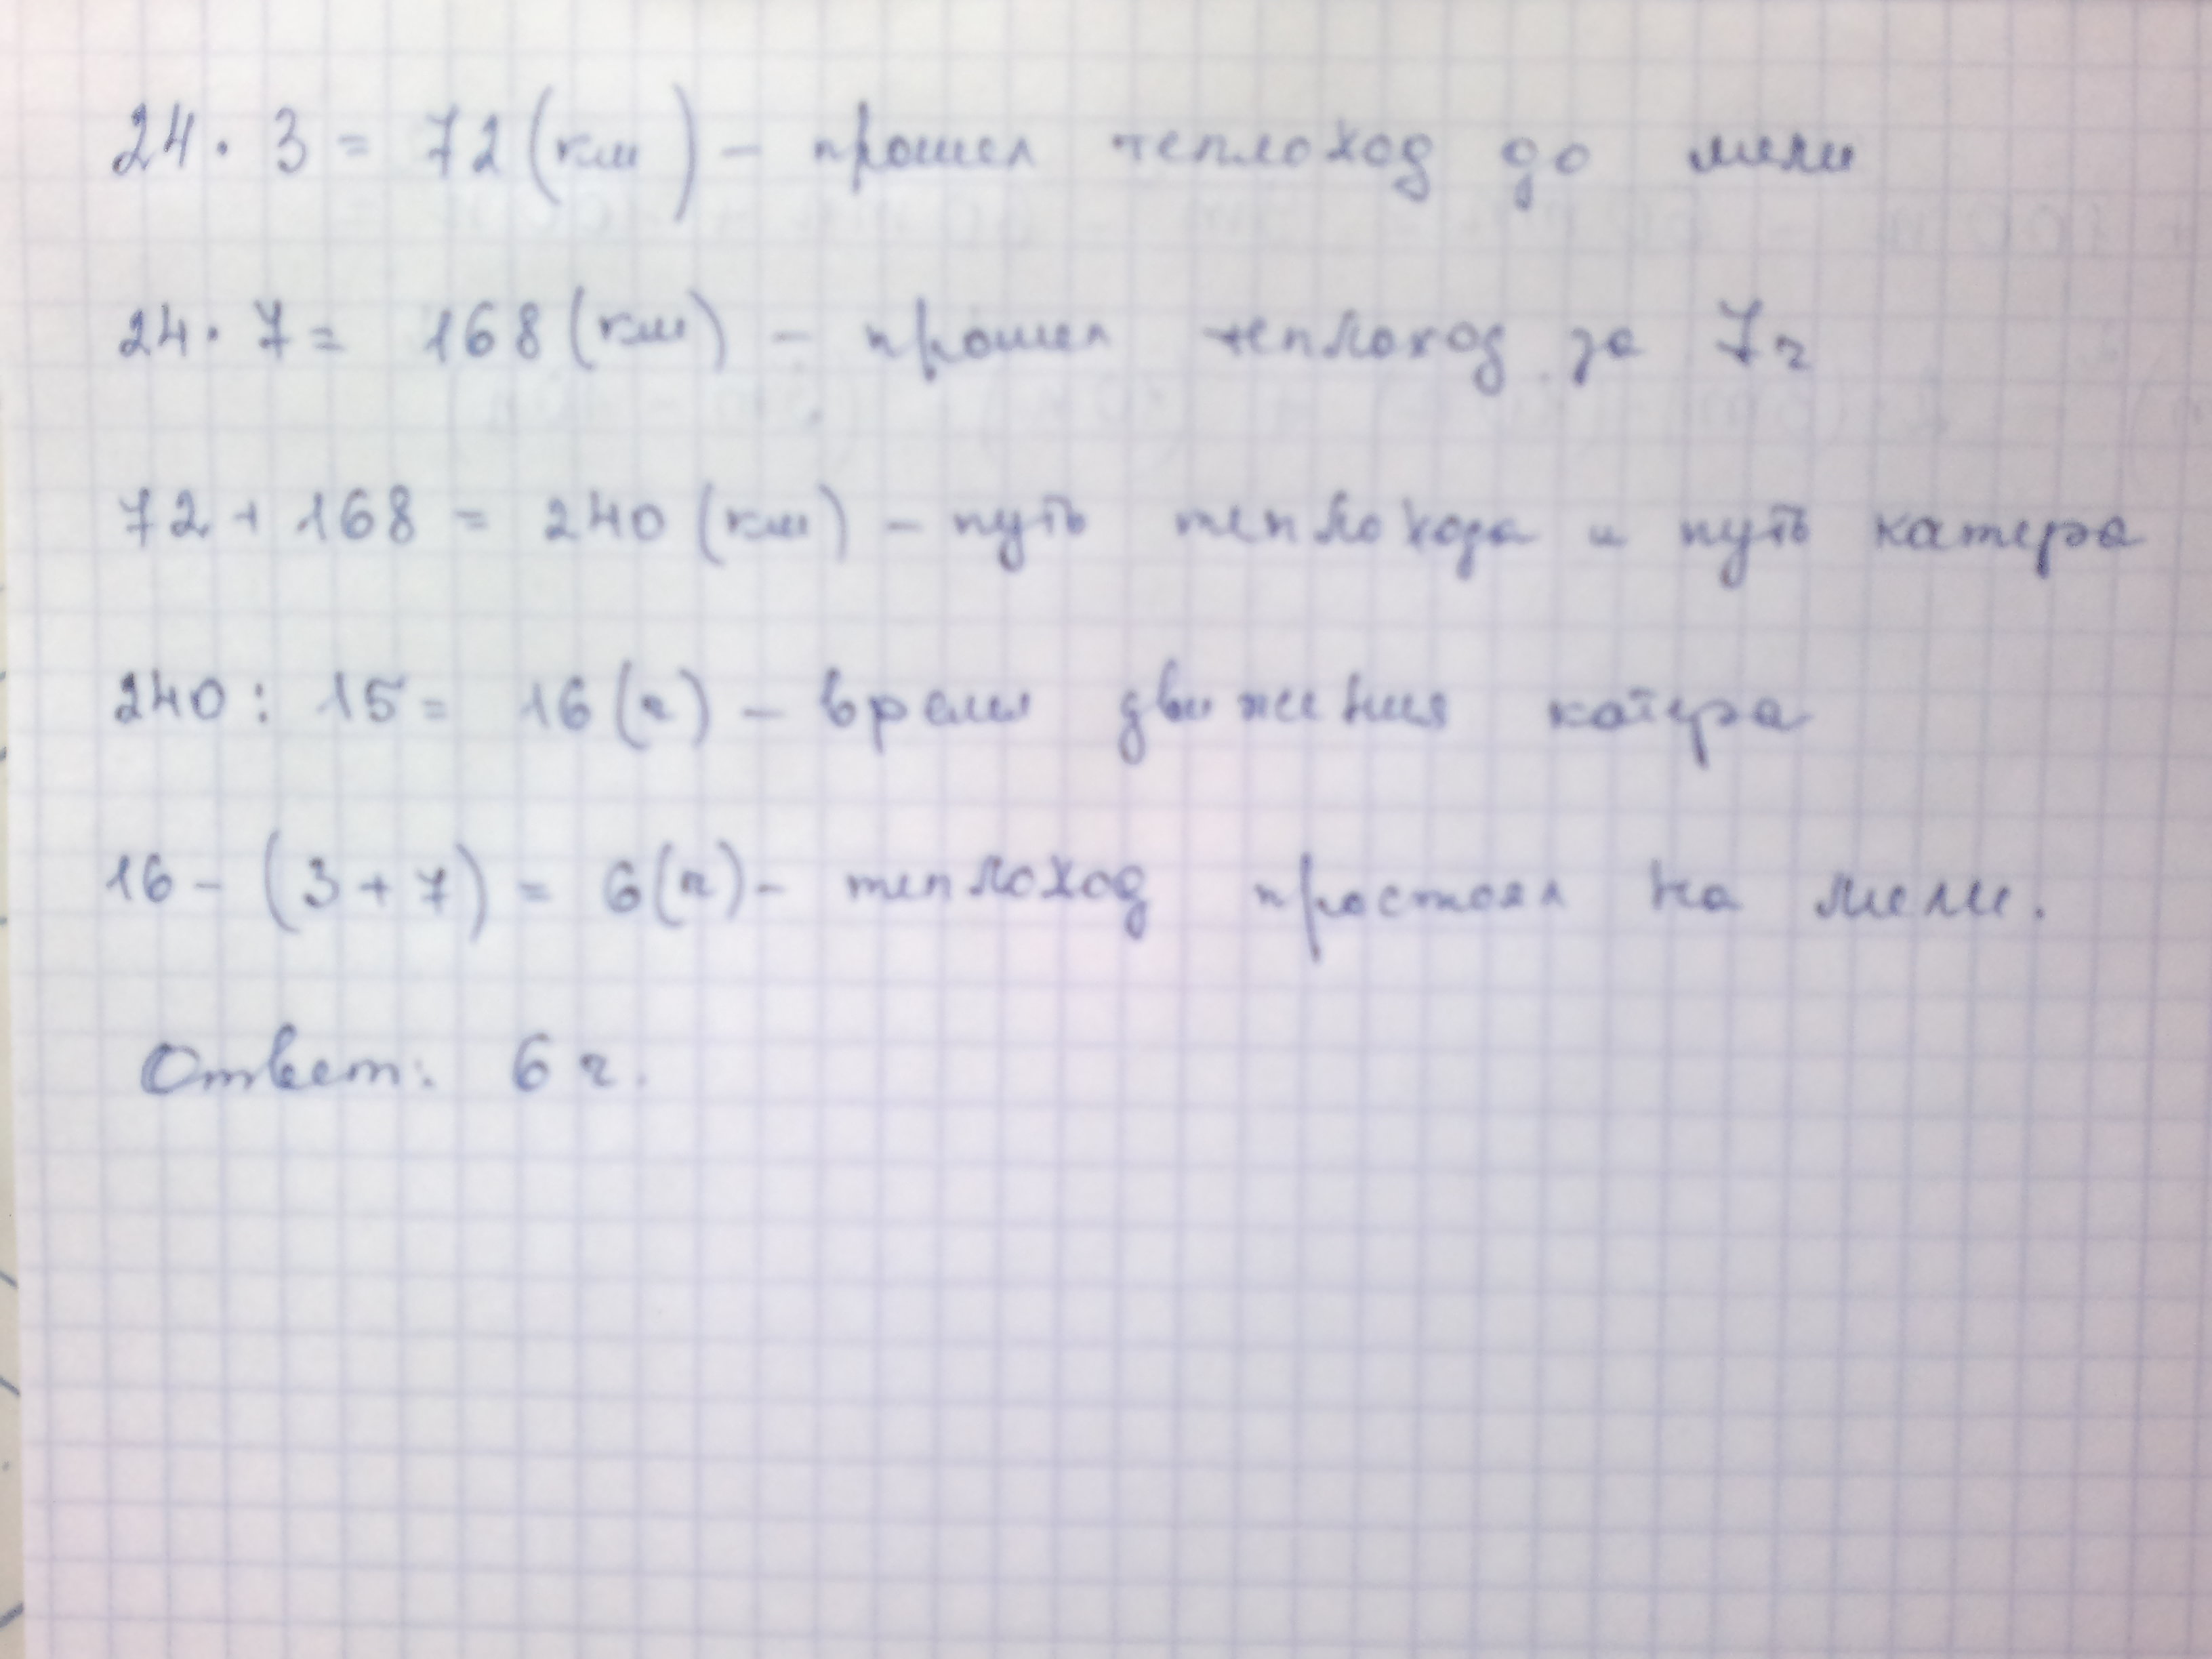 24 · 3 = 72 (км) – прошел теплоход до мели
24 · 7 = 168 (км) – прошел теплоход за 7 ч
72 + 168 = 240 (км) – путь теплохода и путь катера
240 : 15 = 16 (ч) – время движения катера
16 – (3 + 7) = 6 (ч) – теплоход простоял на мели.
Ответ: 6 ч.